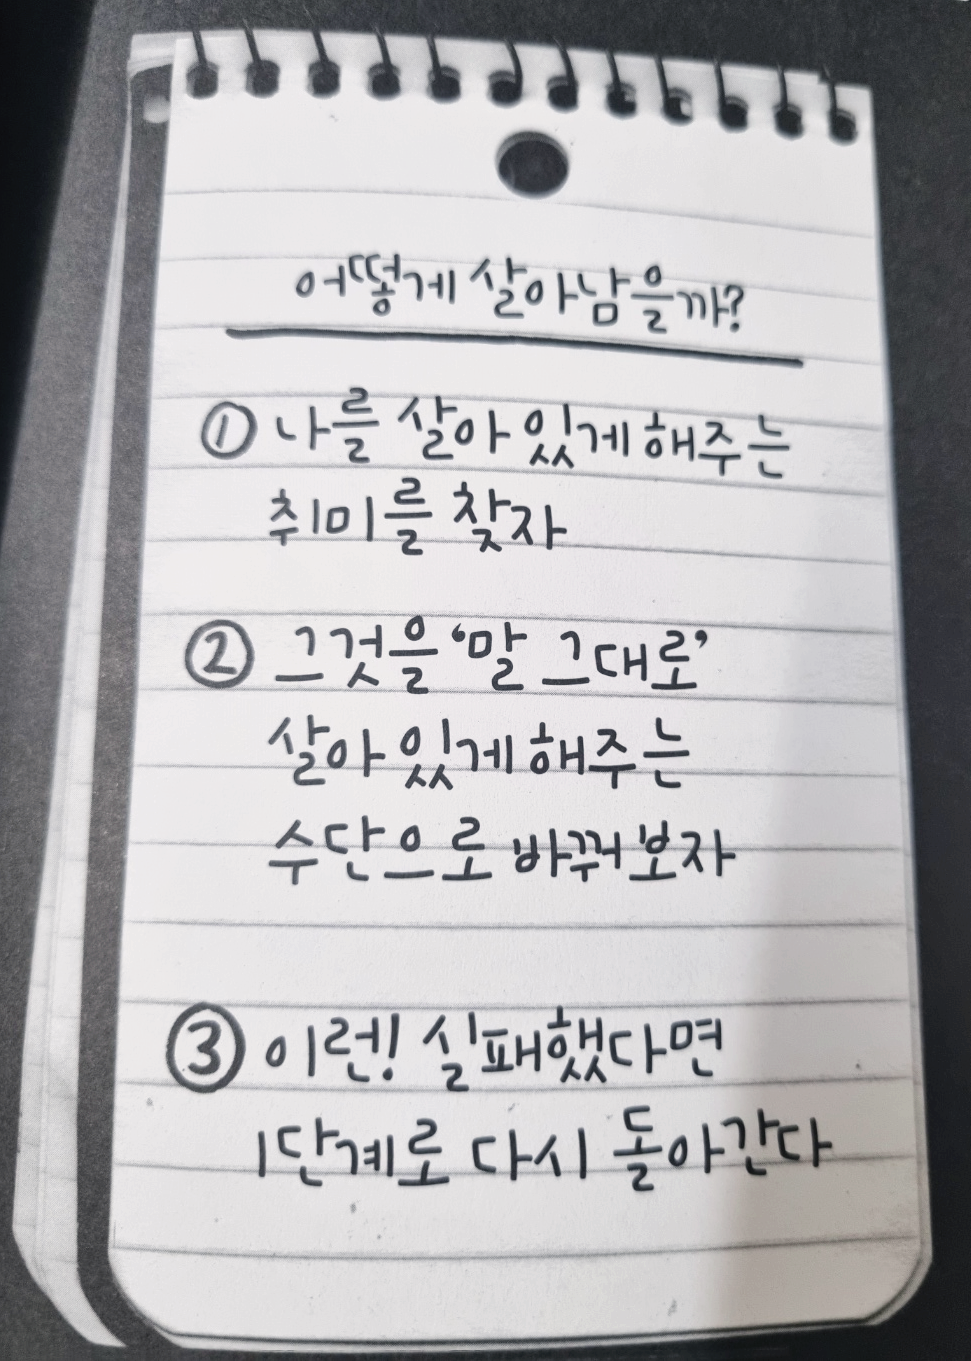 어떻게 살아남을까?
① 나를 살아있게 해주는
취미를 찾자
② 그것을 ‘말 그대로’
살아있게 해주는
수단으로 바꿔보자
③ 이런! 실패했다면
1단계로 다시 돌아간다